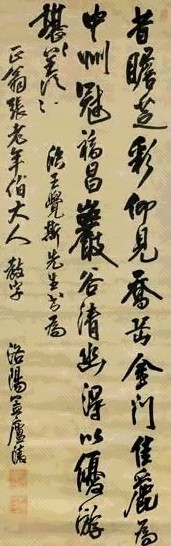 昔瞻芝彩仰見喬岳金门佳麗為
中州冠福昌巖谷清幽得以優游
堪羨〻 臨王覺斯先生書為
正翁張老年伯大人 教字 洛陽